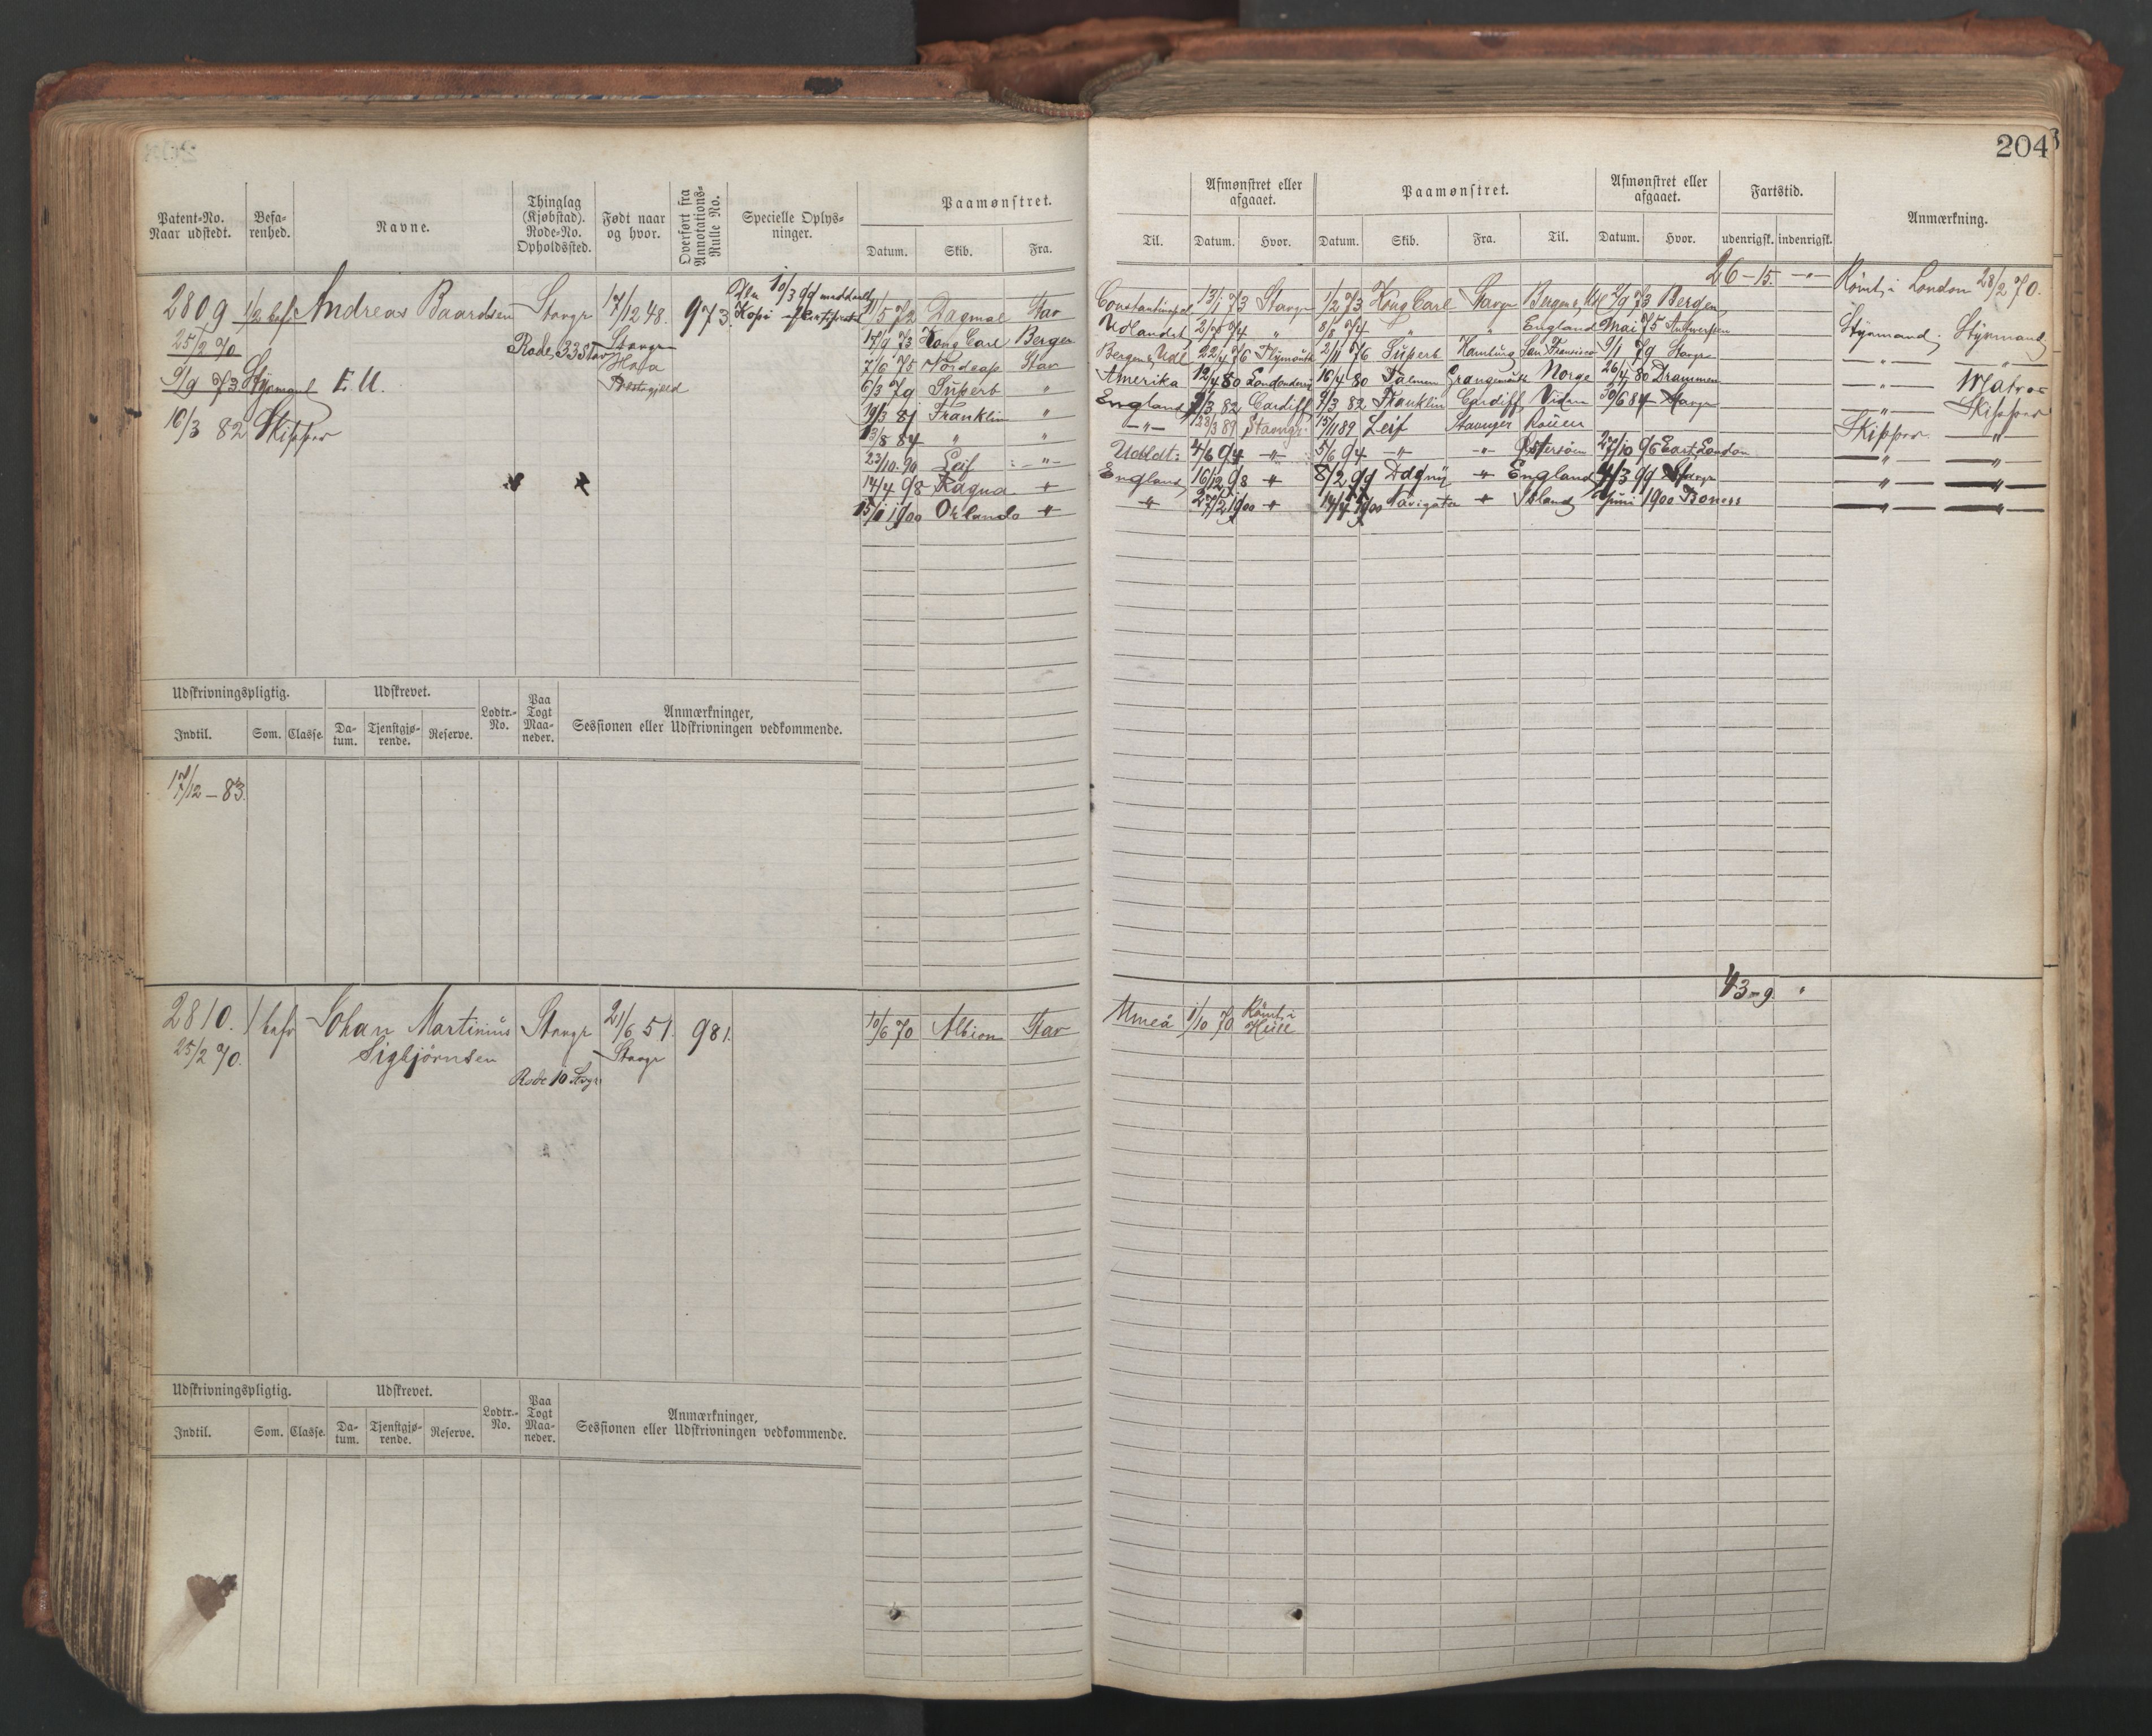 204
Patent-No. Naar udstedt.
Befarenhed.
Navne.
Thinglag (Kjøbstad). Rode-No. Opholdssted.
Født naar og hvor.
Overført fra Annotations-Rulle No.
Specielle Oplysninger.
Paamønstret.
Datum. Skib. Fra.
Til.
Afmønstret eller afgaaet.
Datum. Hvor.
Paamønstret.
Datum. Skib. Fra. Til.
Afmønstret eller afgaaet.
Datum. Hvor.
Fartstid.
udenrigsk. indenrigsk.
Anmærkning.
2809 1/2 bef. Andreas Baardsen Stavgr 17/12 48. 973.
25/2 70 Rode 33 Stav Stavgr
9/9 73 Styrmand E.U.
Præstegjeld
16/3 82 Skipper
10/3 99 meddeelt
Kopi
11/5 72 Dagmal Stav
17/9 73 Kong Carl Bergen
7/6 75 Nordcap Stav
6/3 79 Superb "
19/3 81 Franklin "
13/8 84 " "
23/10. 90 Leif - " -
14/4 98 Ragna "
15/1 1900 Orlando "
26-15. - " - Römt i London 28/2 70.
Constantinopel 13/1 73 Stavgr 1/2 73 Kong Carl Stavgr Bergen & Udl 2/9 73 Bergen
Udlandet 2/7 74 " 8/8 74 " " England Mai 75 Antwerpen Styrmand Styrmand
Bergen & Udl 22/4 76 Plymouth 2/11 76 Superb Hamburg San Francisco 9/1 79 Stavgr - " - "
Amerika 12/4 80 Londonderry 16/4 80 Palmen Grangemouth Norge 26/4 80 Drammen - " - Matros
England 9/3 82 Cardiff 9/3 82 Franklin Cardiff Viden 30/6 84 Stavgr - " - Skipper
- " - 23/3 89 Stavngr 15/11 89 Leif Stavnger Rouen Skipper - " -
Udldt: 4/6 94 - " - 5/6 94 - " - - " - Østersøen 27/10 96 East London - " - - " -
England 16/12 98 " 8/2 99 Dagny " England 4/3 99 Stavgr - " - - " -
" 27/2 1900 " 14/4 1900 Navigator " Island Juni 1900 Boness - " - - " -
Udskrivningspligtig. Udskrevet. Lodtr.-No. Paa Togt Maaneder. Anmærkninger, Sessionen eller Udskrivningen vedkommende.
Indtil. Som. Classe. Datum. Tjenstgjørende. Reserve.
17/12 - 83.
2810. 1/ befr Johan Martinius Stavgr 21/6 51. 981. 10/6 70 Albion Stav
25/2 70. Sigbjörnsen Stavgr
Rode 10 Stvgr
43-9. "
Umeå 1/10 70. Römt i Hull
Udskrivningspligtig. Udskrevet. Lodtr.-No. Paa Togt Maaneder. Anmærkninger, Sessionen eller Udskrivningen vedkommende.
Indtil. Som. Classe. Datum. Tjenstgjørende. Reserve.